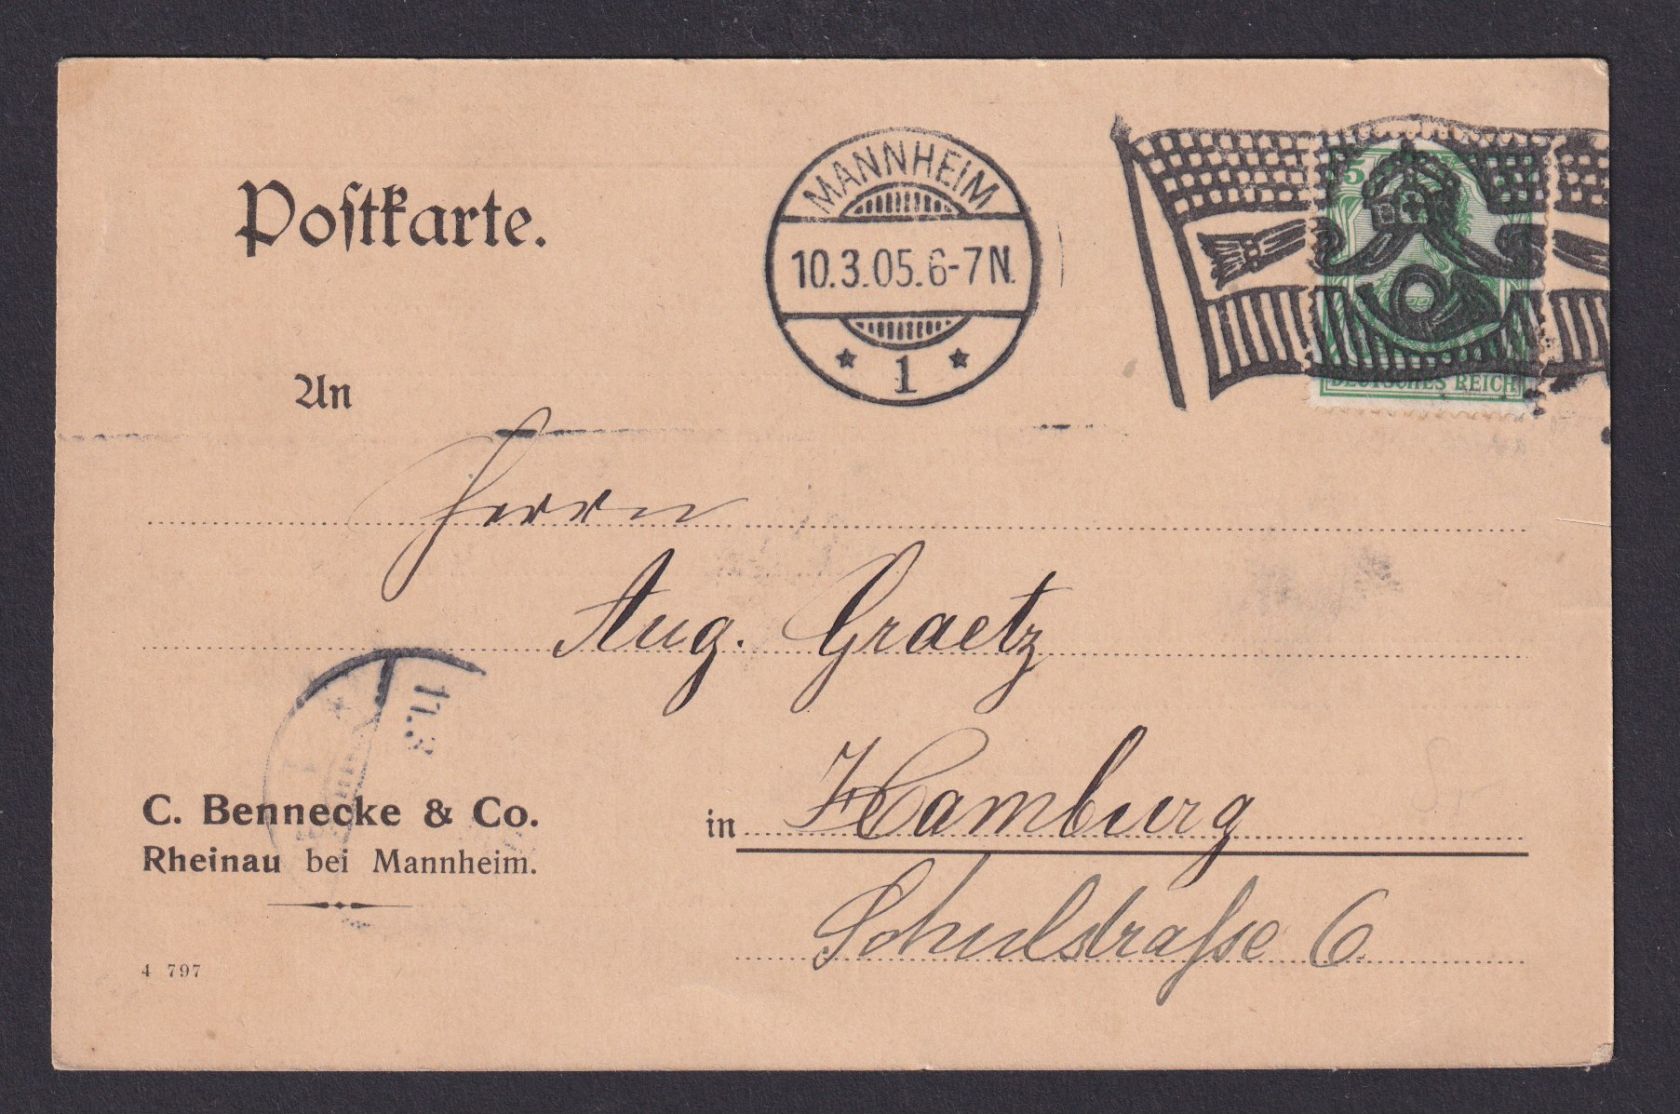 Postkarte.
MANNHEIM
10.3.05.6-7N.
* 1 *
5
DEUTSCHES REICH
An
Herrn
Aug. Graetz
11.3
C. Bennecke & Co.
Rheinau bei Mannheim.
in Hamburg
Schulstraße 6.
4 797